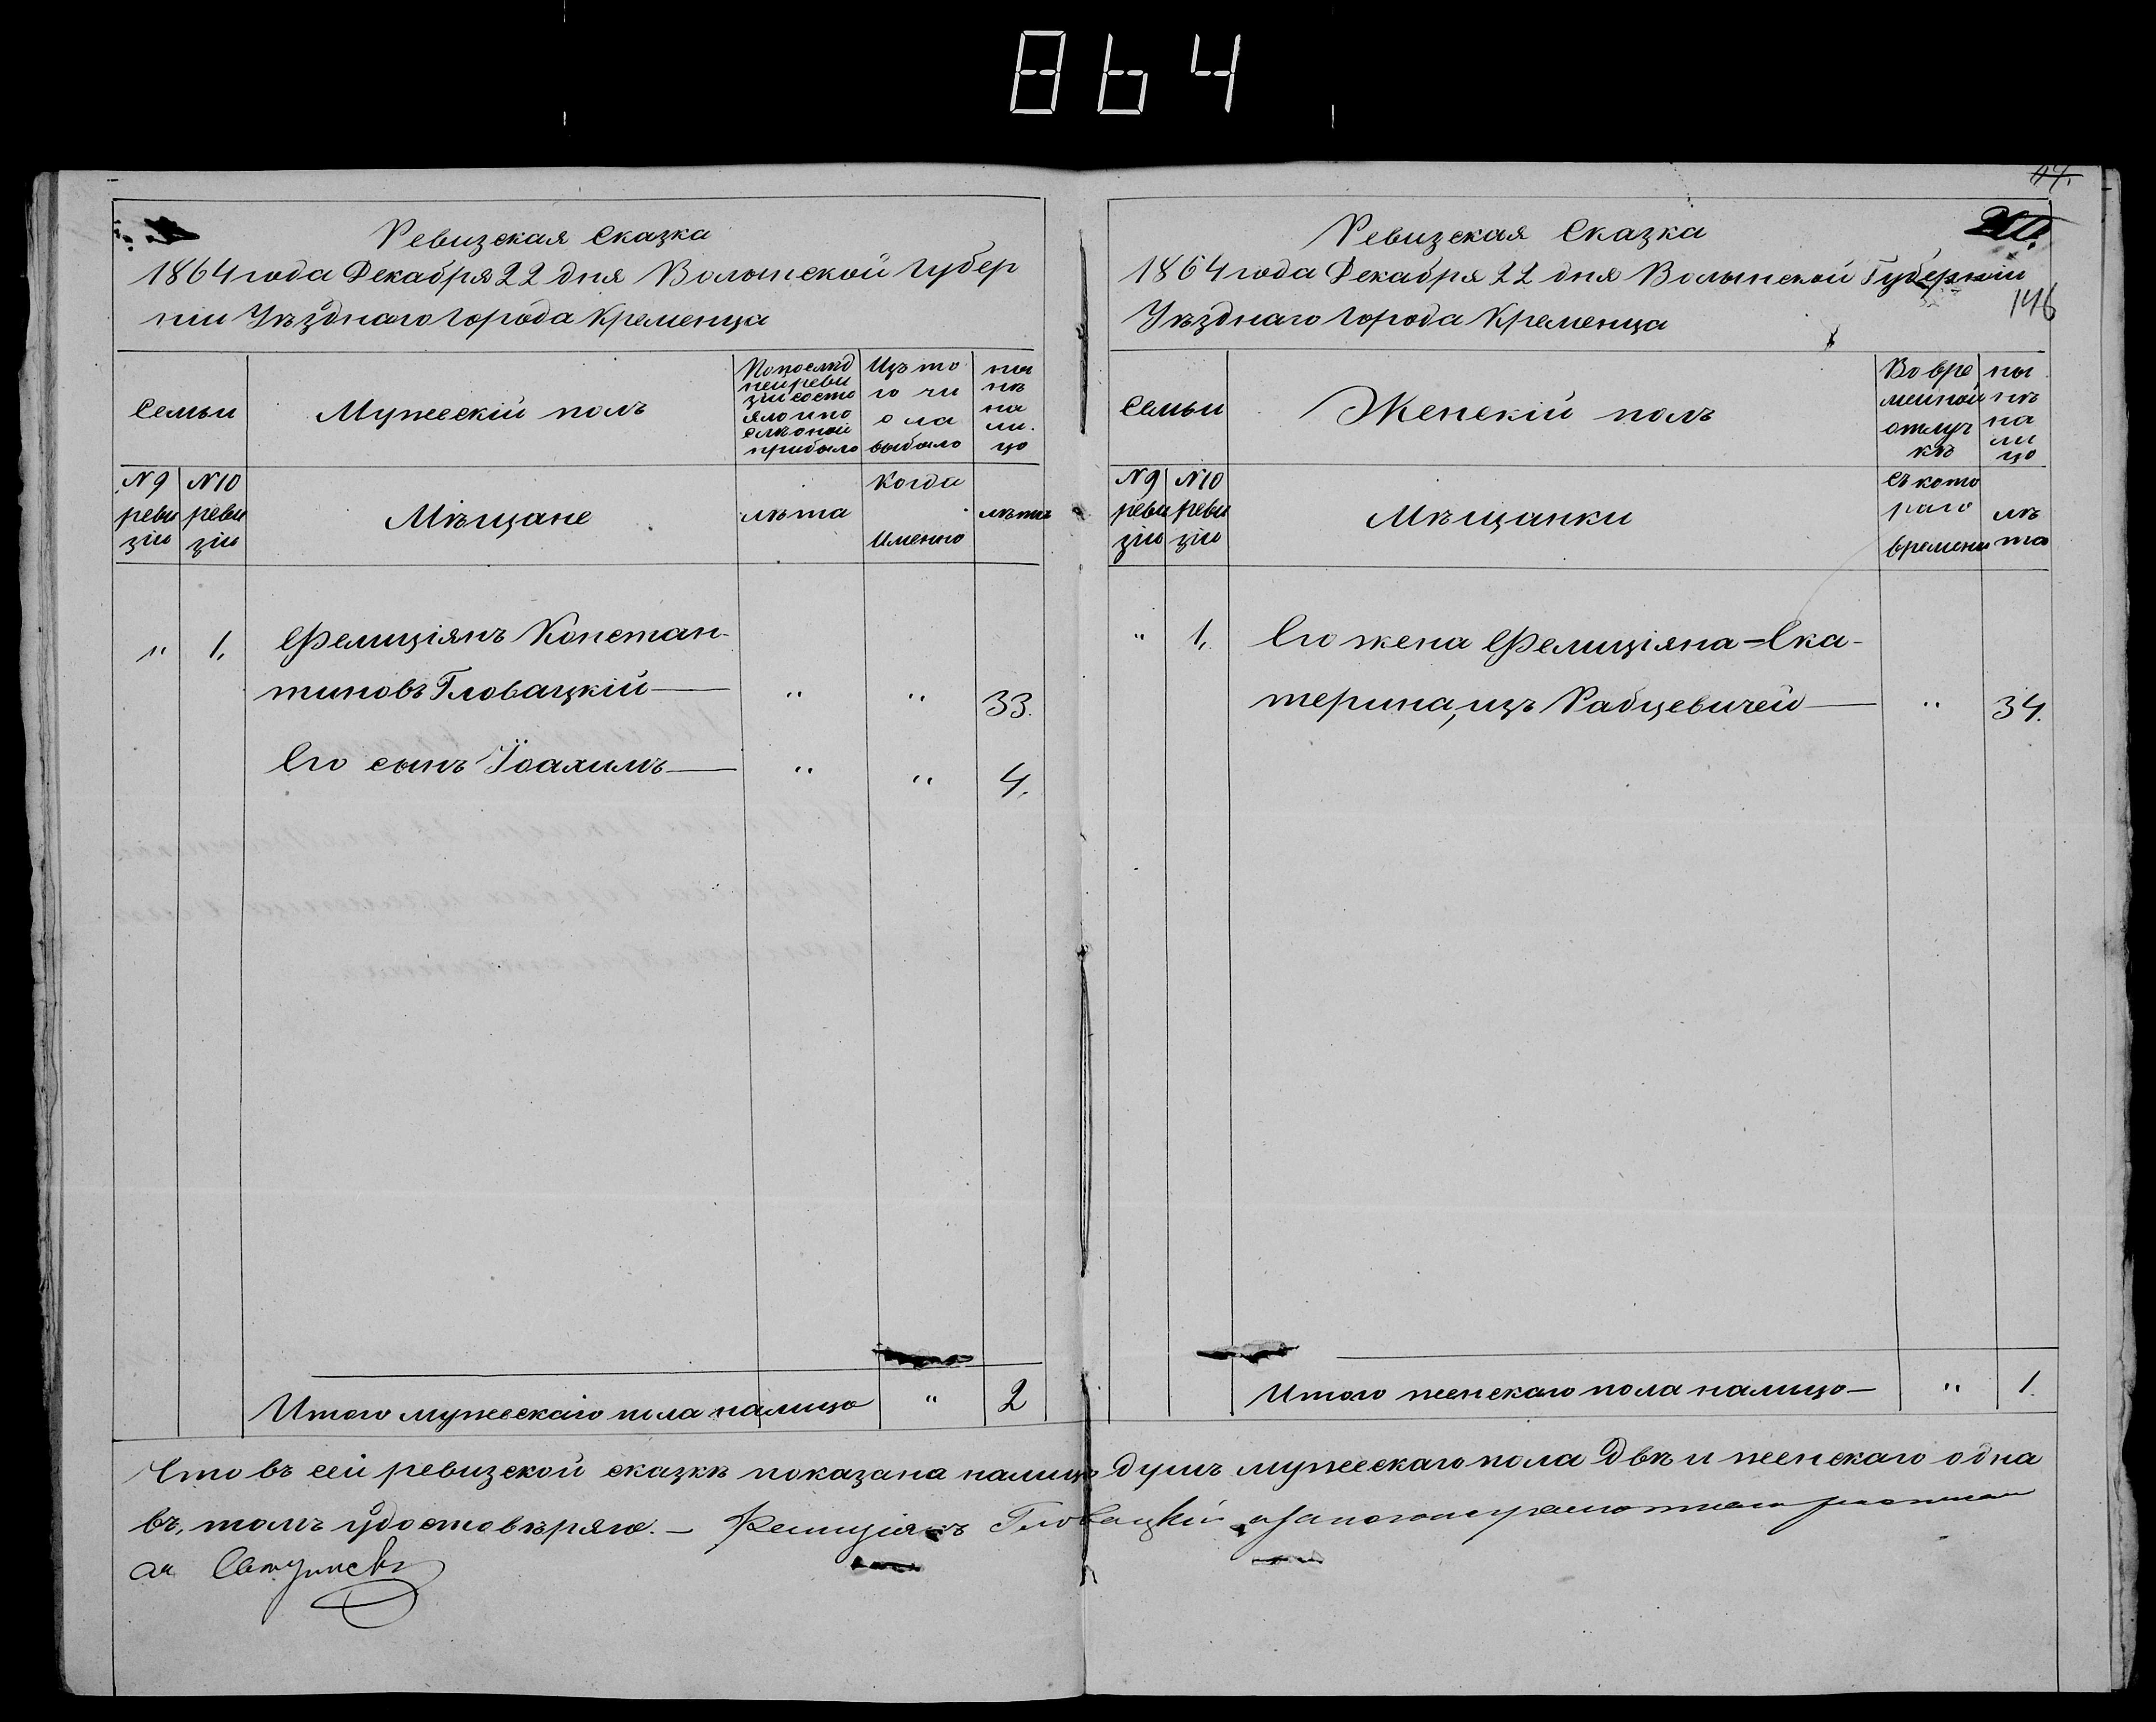 864
Ревизская Сказка
1864 года Декабря 22 дня Волынской Губер
ніи Уѣзднаго Города Кременца
Семьи
Мужескій полъ
Попослѣд
ней реви
зіи состо
яло и по
слѣ оной
прибыло
Изъ то
го чи
сла
выбыло
ны
нѣ
на
ли
цо
№ 9
реви
зіи
№ 10
реви
зіи
Мѣщане
лѣта
Когда
Именно
лѣта
" 1. Фелиціянъ Констан-
тиновъ Гловацкій — " " 33.
Его сынъ Іоахимъ — " " 4.
Итого мужескаго пола налицо " 2
44.
Ревизская Сказка
1864 года Декабря 22 дня Волынской Губерніи
146
Уѣзднаго Города Кременца
Семьи
Женскій полъ
Во вре
менной
отлуч
кѣ
ны
нѣ
на
ли
цо
№ 9
реви
зіи
№ 10
реви
зіи
Мѣщанки
Съ кото
раго
времени
лѣ
та
" 1. Его жена Фелиціяна = Ека-
терина, изъ Рабцевичей — " 34.
Итого женскаго пола налицо — " 1.
Что въ сей ревизской сказкѣ показана налицо душъ мужескаго пола двѣ и женскаго одна
въ, томъ удостовѣряю. — Фелиціянъ Гловацкій